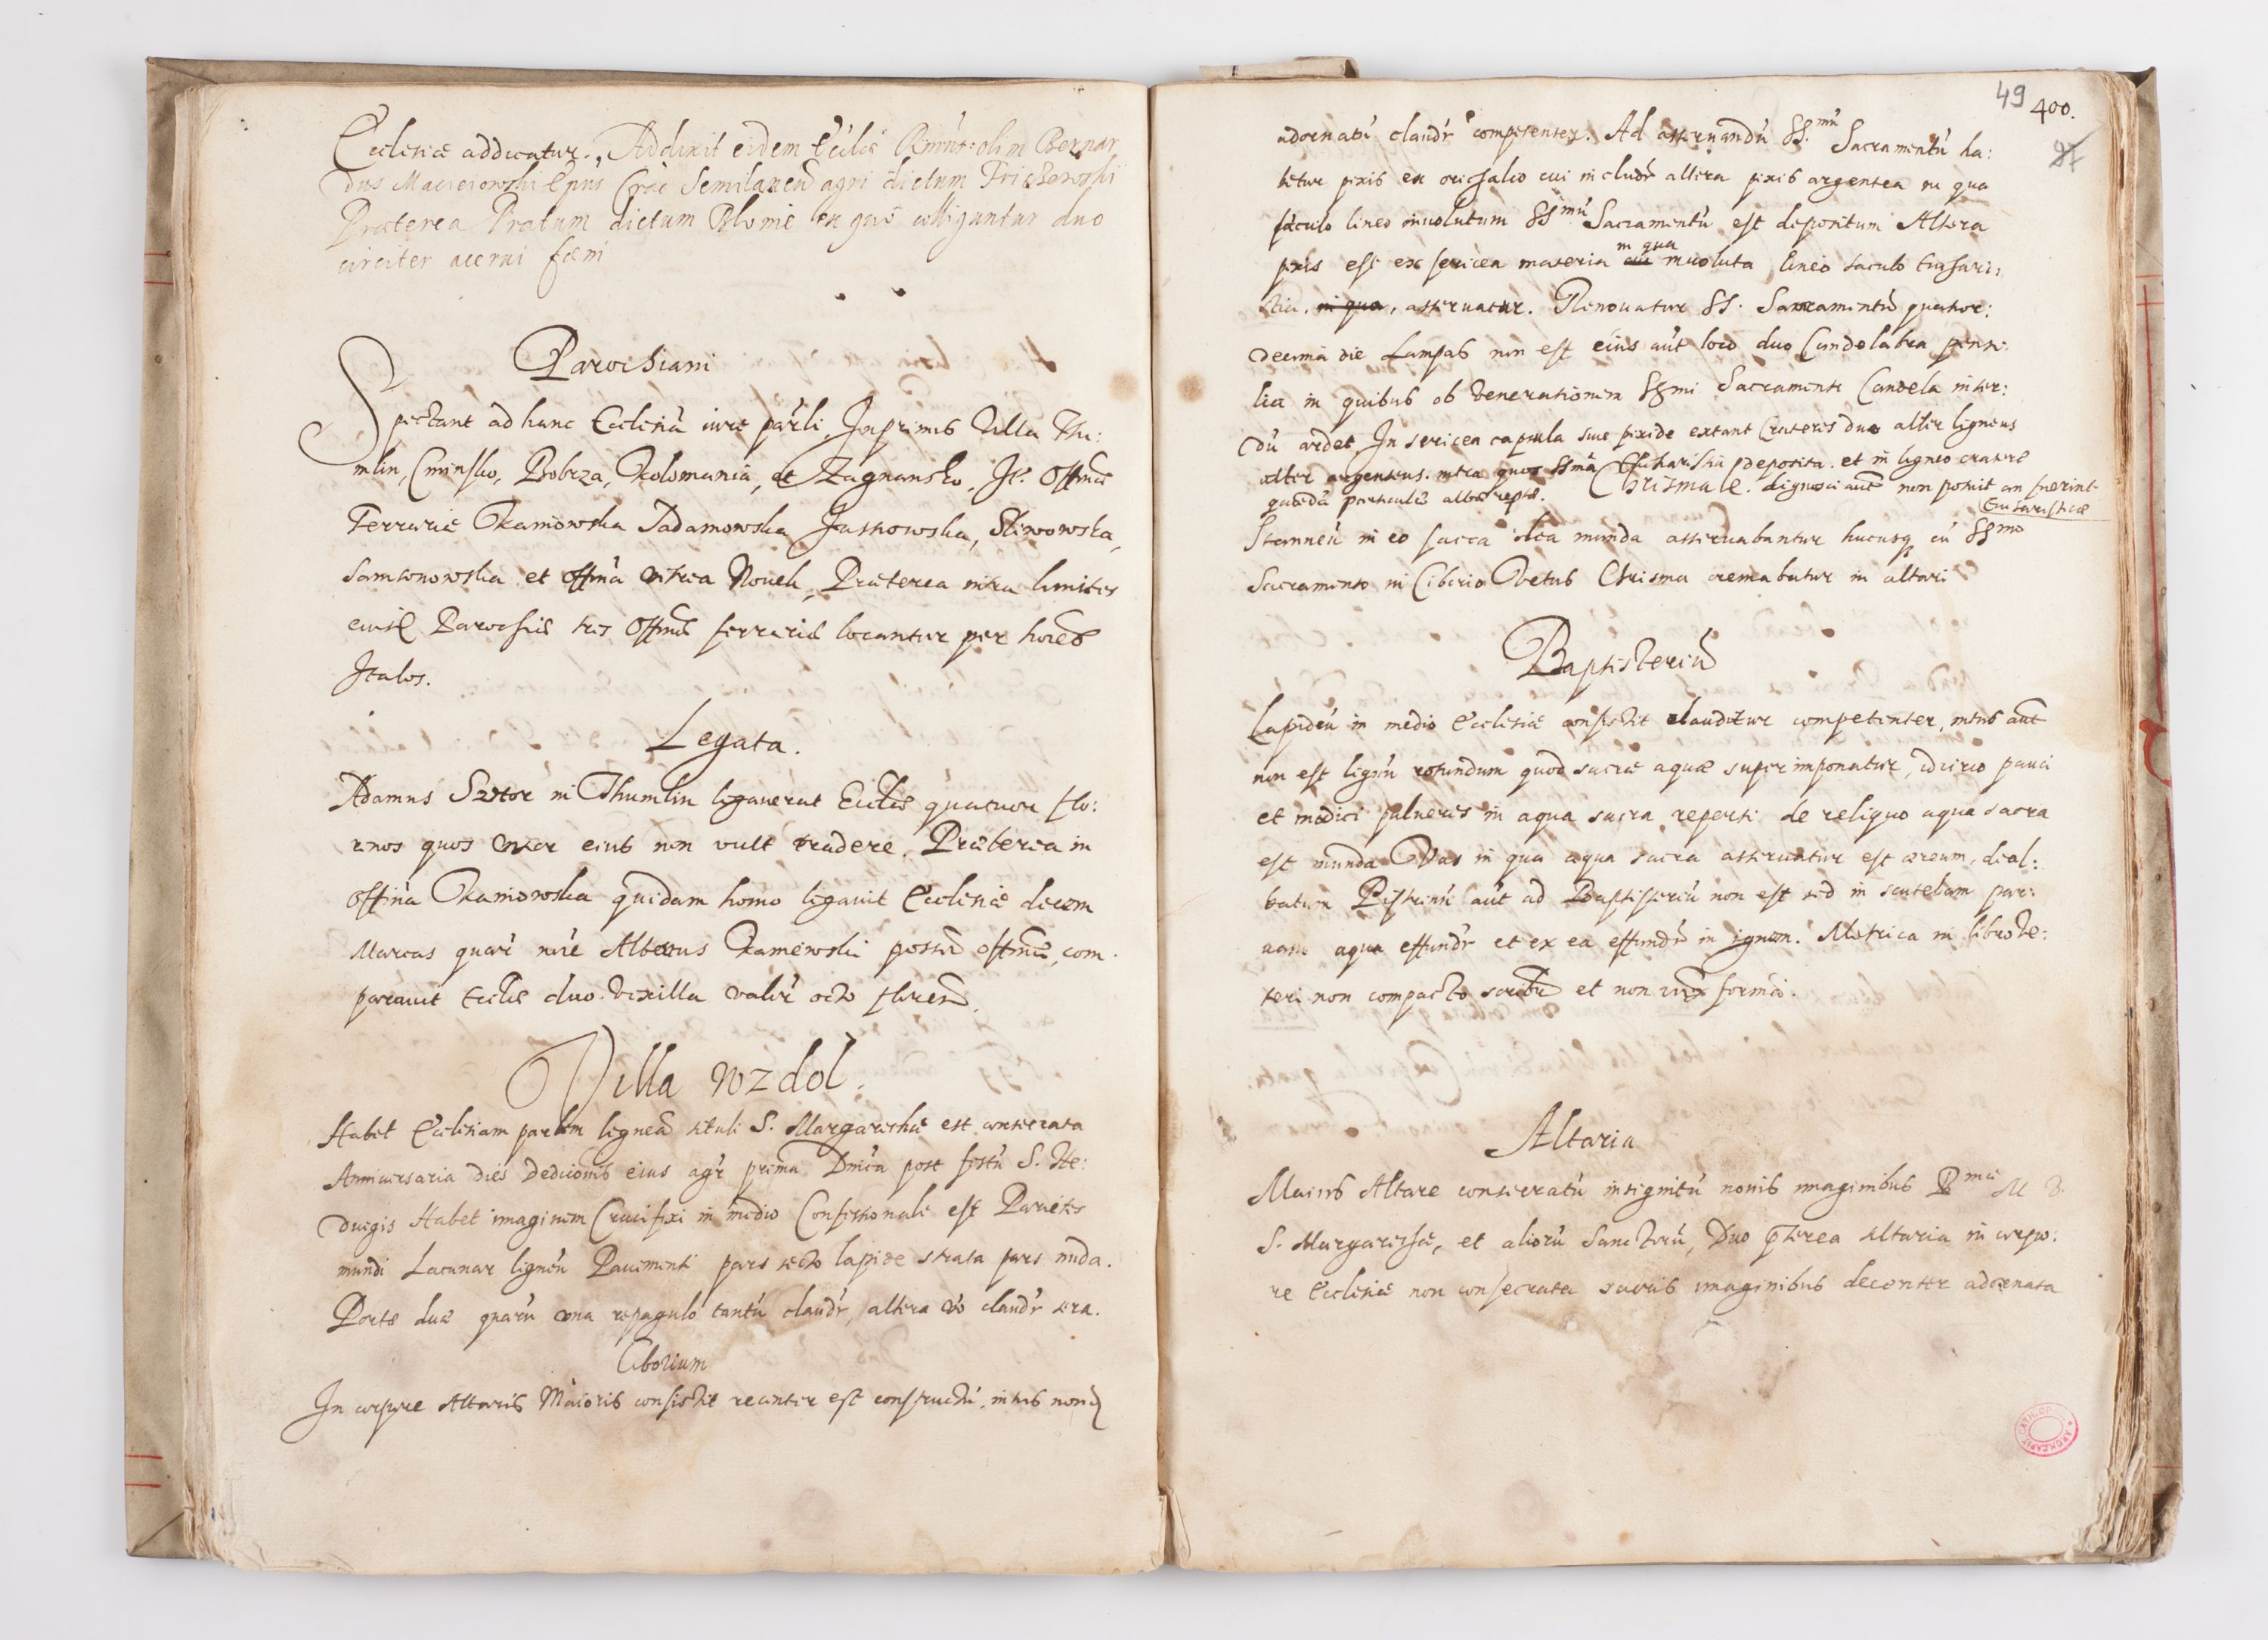 Ecclesiæ addicatur., Addixit eidem Ecclie Rmus: olim Bernar
dus Macieiowski Epus Crac Semilaneu agri dictum Trichewski
Præterea Pratum dictum Blonie ex quo colliguntur duo
circiter acerui fæni
Parochiani
Spectant ad hanc Ecclesiã iure parli, Inprimis Villa Thu:
mlin, Cminsko, Bobrza, Kolomania, et Zagnansko, It. Offinæ
Ferrariæ Kaniowska Adamowska Jasnowska, Sliwowska,
Samsonowska et offina vitrea Noueli, Præterea intra limites
eiusd Parochiæ tres Offinæ ferrariæ locantur per hoies
Italos.
Legata.
Adamus Sutor in Thumlin legauerat Ecclæ quatuor flo:
renos quos vxor eius non vult tradere. Præterea in
offina Kaniowska quidam homo legauit Ecclesiæ decem
Marcas quar noie Albertus Kaniewski possor offinæ, com
parauit Ecclæ duo vexilla valor octo floren.
Villa Wzdol.
Habet Ecclesiam parlem ligneã tituli S. Margarethæ est consecrata
Anniuersaria dies Dedicõnis eius agr prima Dnica post festũ S. He:
duigis Habet imaginem Crucifixi in medio Confessionale est Parietes
mundi Lacunar ligneũ Pauimenti pars secto lapide strata pars nuda.
Portæ duæ quarũ vna repagulo tantũ claudr, altera vo claudr sera.
Ciborium
In corpore Altaris Maioris consistit recenter est constructũ, intus non
49 400.
adornatũ claudr competenter. Ad asseruandũ SS.mũ Sacramentũ ha:
betur pixis ex orichalco cui includr altera pixis argentea in qua
saculo lineo inuolutum SSmũ Sacramentũ est depositum Altera
pixis est ex sericea materia in qua inuoluta lineo saculo Euchari:
stia, in qua, asseruatur. Renouatur SS. Sacramentũ quator:
decima die Lampas non est eius aũt loco duo Candelabra pensi:
lia in quibus ob venerationem SSmi Sacramenti Candela inter:
dũ ardet. In sericea capsula siue pixide extant Crateres duo alter ligneus
alter argenteus. intra quos SSma Eucharistia deposita. et in ligneo cratere
quædã particulæ albæ reptæ. Chrismale. dignosci aut non potuit an fuerint
Eucharisticæ
Stanneũ in eo sacra olea munda asseruabantur hucusq cũ SSmo
Sacramento in Ciborio Vetus Chrisma cremabatur in altari
Baptisteriũ
Lapideũ in medio Ecclesiæ consistit clauditur competenter, intus aut
non est lignũ rotundum quod sacræ aquæ superimponatur, idcirco pauci
et modici pulueres in aqua sacra reperti de reliquo aqua sacra
est munda Vas in quo aqua sacra asseruatur est æreum, deal:
batum Piscinũ aũt ad Baptisteriũ non est sed in scutelam par:
uam aqua effundr et ex ea effundr in ignem. Metrica in libro ve:
teri non compacto scribr et non iux formã.
Altaria
Maius Altare consecratũ insignitũ nouis imaginibus Bmæ M V.
S. Margarethæ, et aliorũ Sanctorũ, Duo pterea altaria in corpo:
re Ecclesiæ non consecrata sacris imaginibus decenter adornata